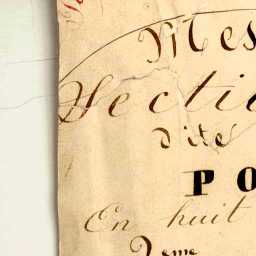 Mes
Secti
dite
PO
En huit
2eme